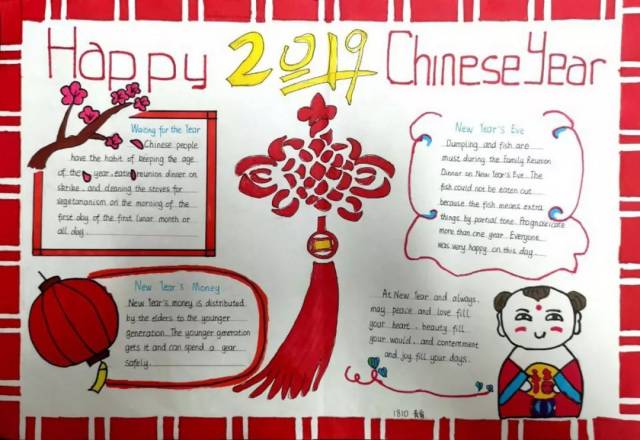 Happy 2019 Chinese Year
Waiting for the Year
Chinese people
have the habit of keeping the age
of the year, eating reunion dinner on
strike, and cleaning the stoves for
vegetarianism on the morning of the
first day of the first lunar month or
all day.
New Year's Eve
Dumpling and fish are
must during the Family Reunion
Dinner on New Year's Eve. The
fish could not be eaten out
because the fish means extra
things by partial tone. Prognosticate
more than one year. Everyone
was very happy on this day.
New Year's Money
New Year's money is distributed
by the elders to the younger
generation. The younger generation
gets it and can spend a year
safely.
At New Year and always,
may peace and love fill
your heart, beauty fill
your would, and contentment
and joy fill your days.
1810